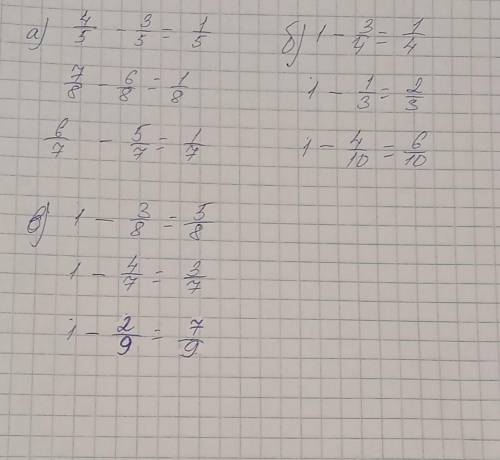 а) 4/5 - 3/5 = 1/5
7/8 - 6/8 = 1/8
6/7 - 5/7 = 1/7
б) 1 - 3/4 = 1/4
1 - 1/3 = 2/3
1 - 4/10 = 6/10
в) 1 - 3/8 = 5/8
1 - 4/7 = 3/7
1 - 2/9 = 7/9